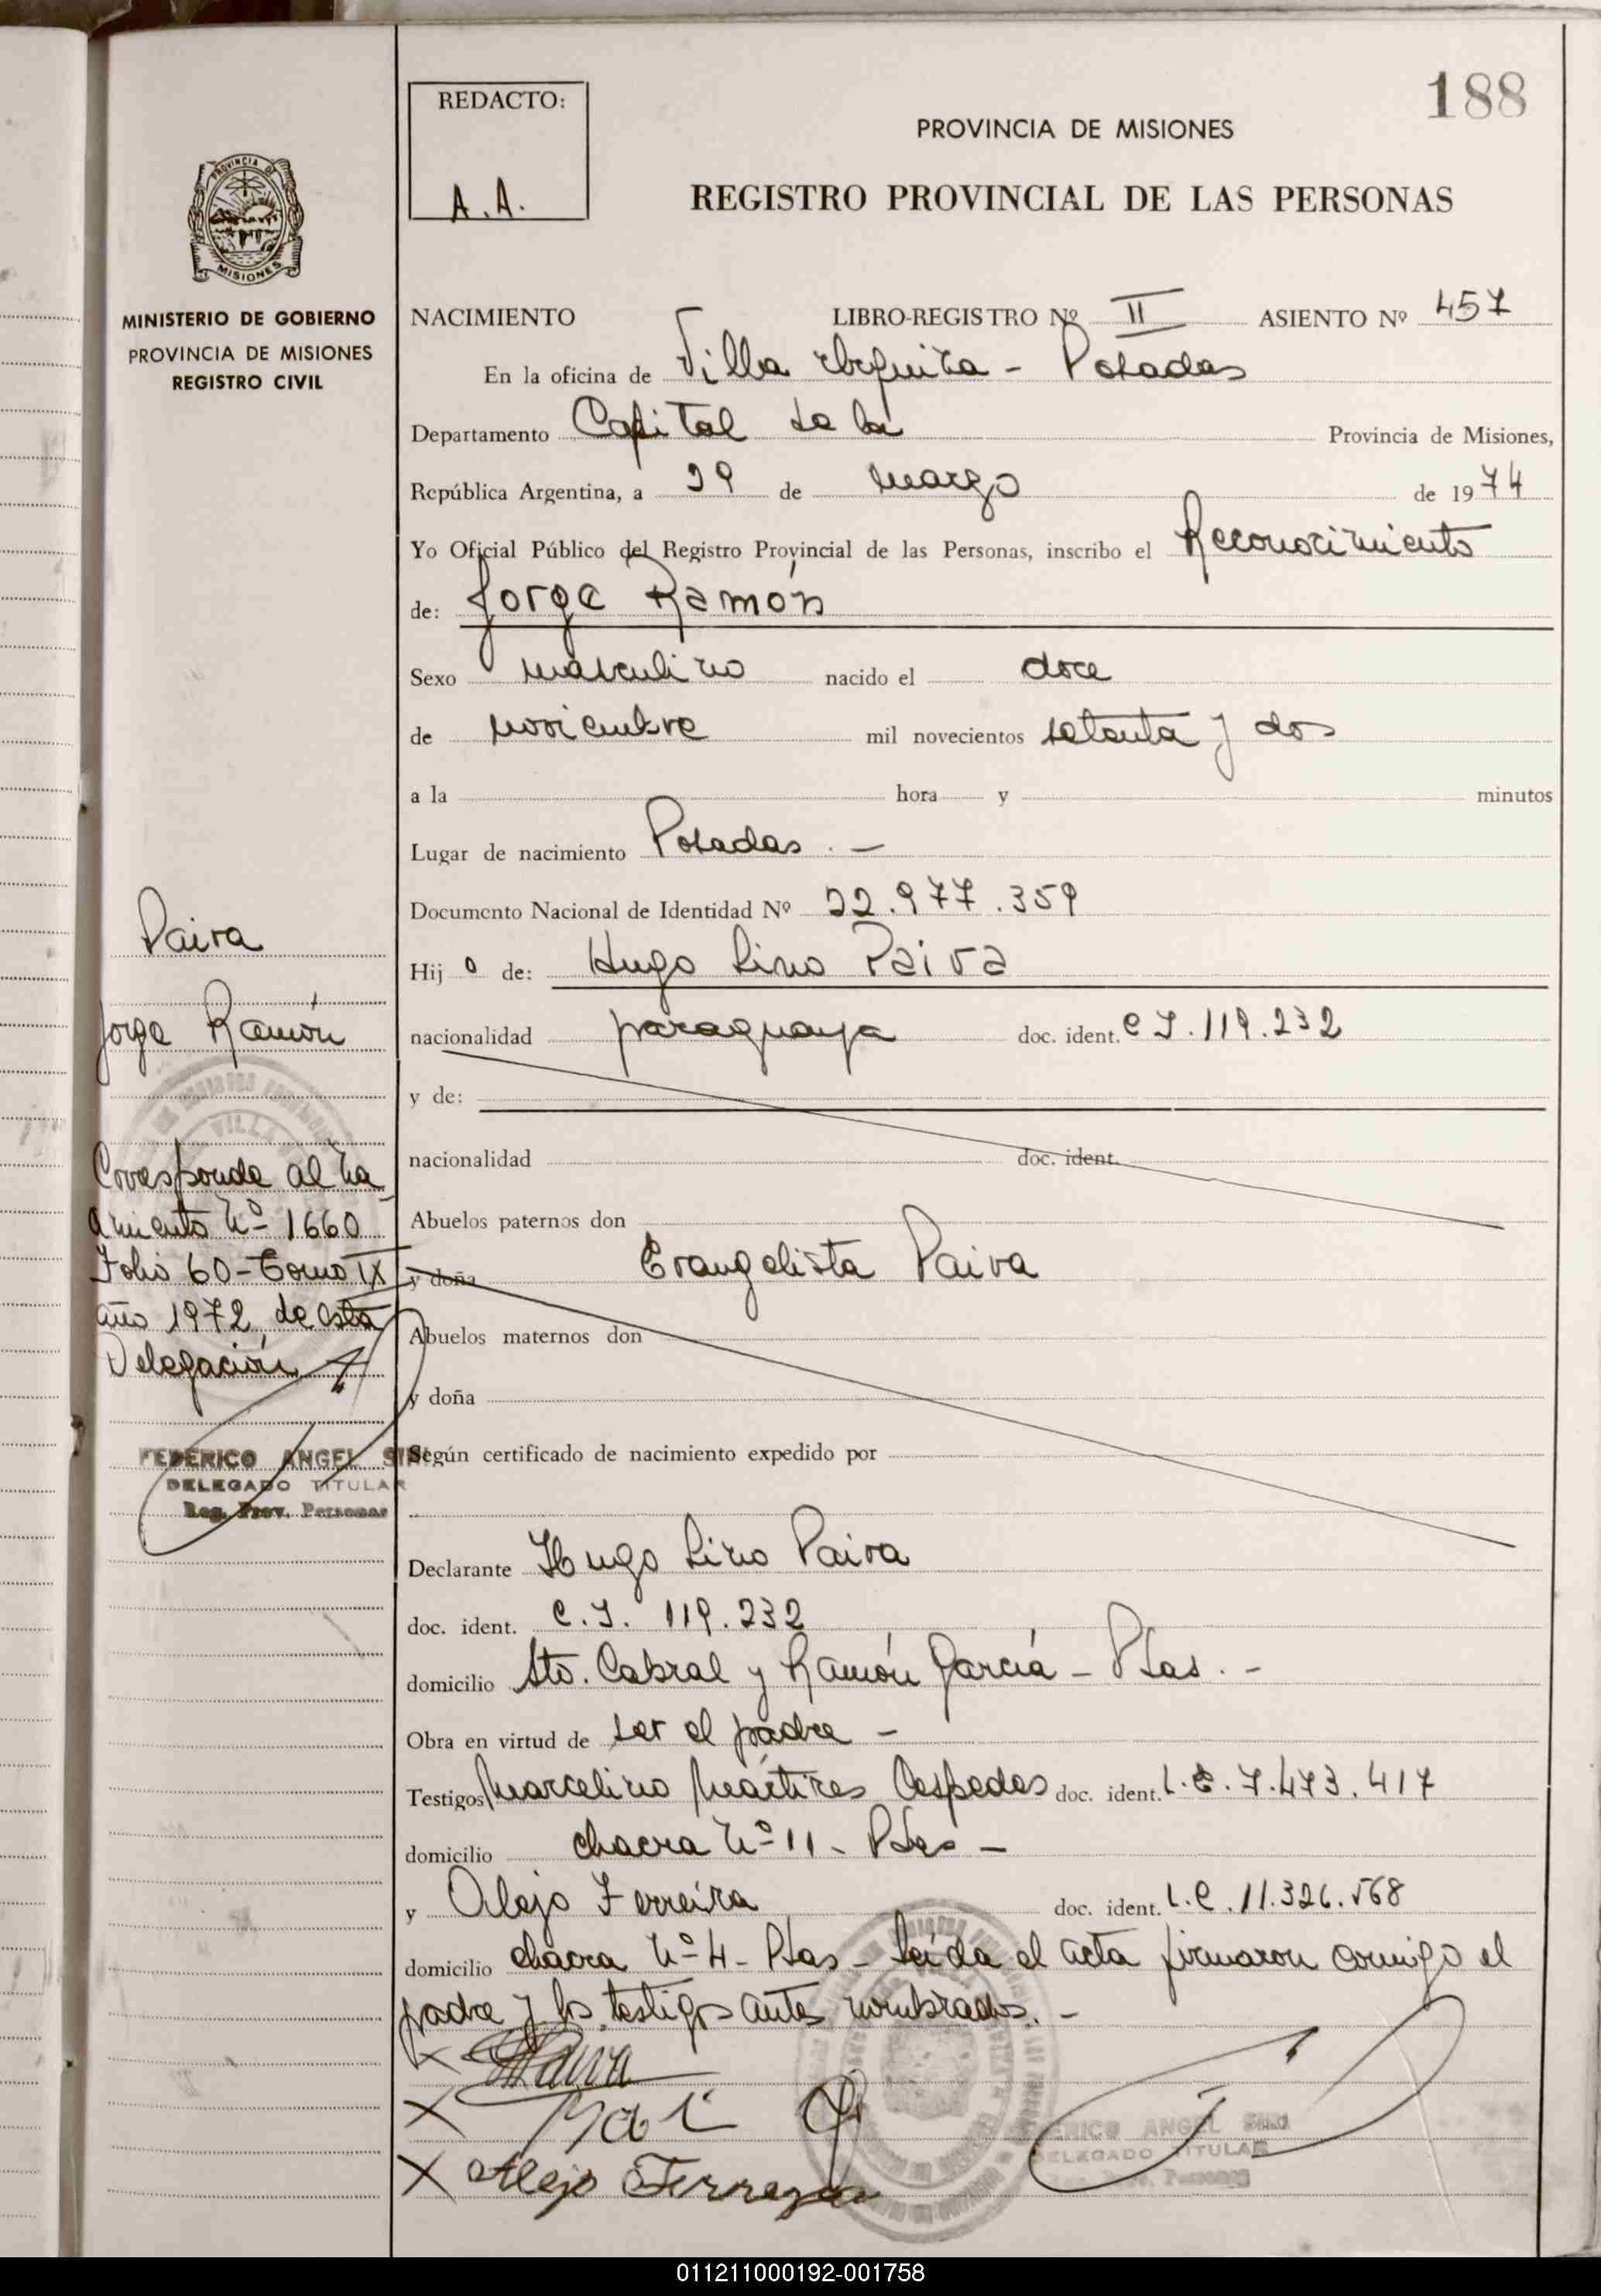 188
REDACTO:
A.A.
PROVINCIA DE MISIONES
REGISTRO PROVINCIAL DE LAS PERSONAS
PROVINCIA DE
MISIONES
MINISTERIO DE GOBIERNO
PROVINCIA DE MISIONES
REGISTRO CIVIL
NACIMIENTO LIBRO-REGISTRO Nº II ASIENTO Nº 457
En la oficina de Villa Urquiza - Posadas
Departamento Capital de la Provincia de Misiones,
República Argentina, a 29 de marzo de 1974
Yo Oficial Público del Registro Provincial de las Personas, inscribo el Reconocimiento
de: Jorge Ramón
Sexo masculino nacido el doce
de noviembre mil novecientos setenta y dos
a la hora y minutos
Lugar de nacimiento Posadas. -
Documento Nacional de Identidad Nº 22.977.359
Hijo de: Hugo Lino Paiva
nacionalidad paraguaya doc. ident. C I. 119.232
y de:
nacionalidad doc. ident.
Abuelos paternos don
y doña Evangelista Paiva
Abuelos maternos don
y doña
Según certificado de nacimiento expedido por
Declarante Hugo Lino Paiva
doc. ident. C.I. 119.232
domicilio Sto. Cabral y Ramón García - Pdas. -
Obra en virtud de ser el padre -
Testigos Marcelino Mártires Cespedes doc. ident. L.E. 7.473.417
domicilio chacra Nº 11 - Pdas -
y Alejo Ferreira doc. ident. L.E. 11.326.568
domicilio chacra Nº 4 - Pdas - Leída el acta firmaron conmigo el
padre y los testigos antes nombrados. -
X Paiva
X
X Alejo Ferreyra
Paiva
Jorge Ramón
Corresponde al na-
cimiento Nº 1660
Folio 60 - Tomo IX
año 1972, de esta
Delegación
FEDERICO ANGEL
DELEGADO TITULAR
Reg. Prov. Personas
ANGEL
DELEGADO TITULAR
011211000192-001758